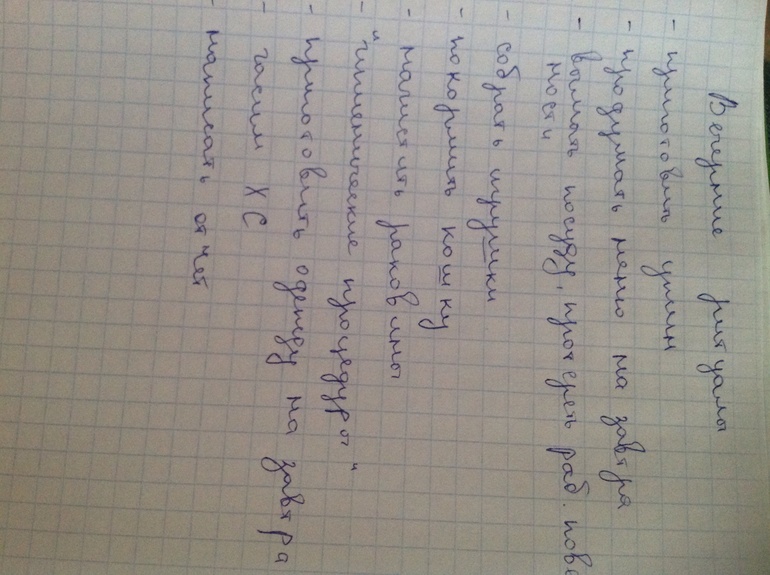 Вечерние ритуалы
- приготовить ужин
- продумать меню на завтра
- вымыть посуду, протереть раб. повер
ности
- собрать игрушки
- покормить кошку
- начистить раковины
- "гигиенические процедуры"
- приготовить одежду на завтра
- гасим ХС
- написать отчет